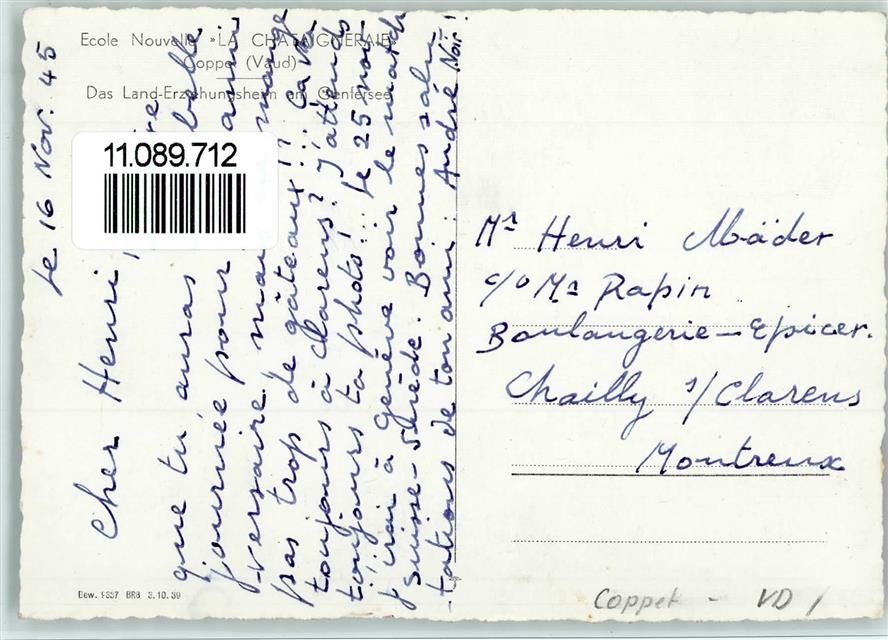 Ecole Nouvelle »LA CHATAIGNERAIE«
Coppet (Vaud)
Das Land-Erziehungsheim am Genfersee
11.089.712
Le 16 Nov. 45
Cher Henri,
que tu auras belle
journée pour anni
-versaire, mais mange
pas trop de gâteaux!! !!! Ça va
toujours à Clarens? J'attends
toujours ta photo!.. Le 25 nov.
j'irai à Genève voir le match
suisse-suède. Bonnes salu-
-tations de ton ami: André Noir!
Mr Henri Mäder
c/o Mr Rapin
Boulangerie-Epicer.
Chailly s/Clarens
Montreux
Bew. 9337 BRB 3.10.39
Coppet - VD /